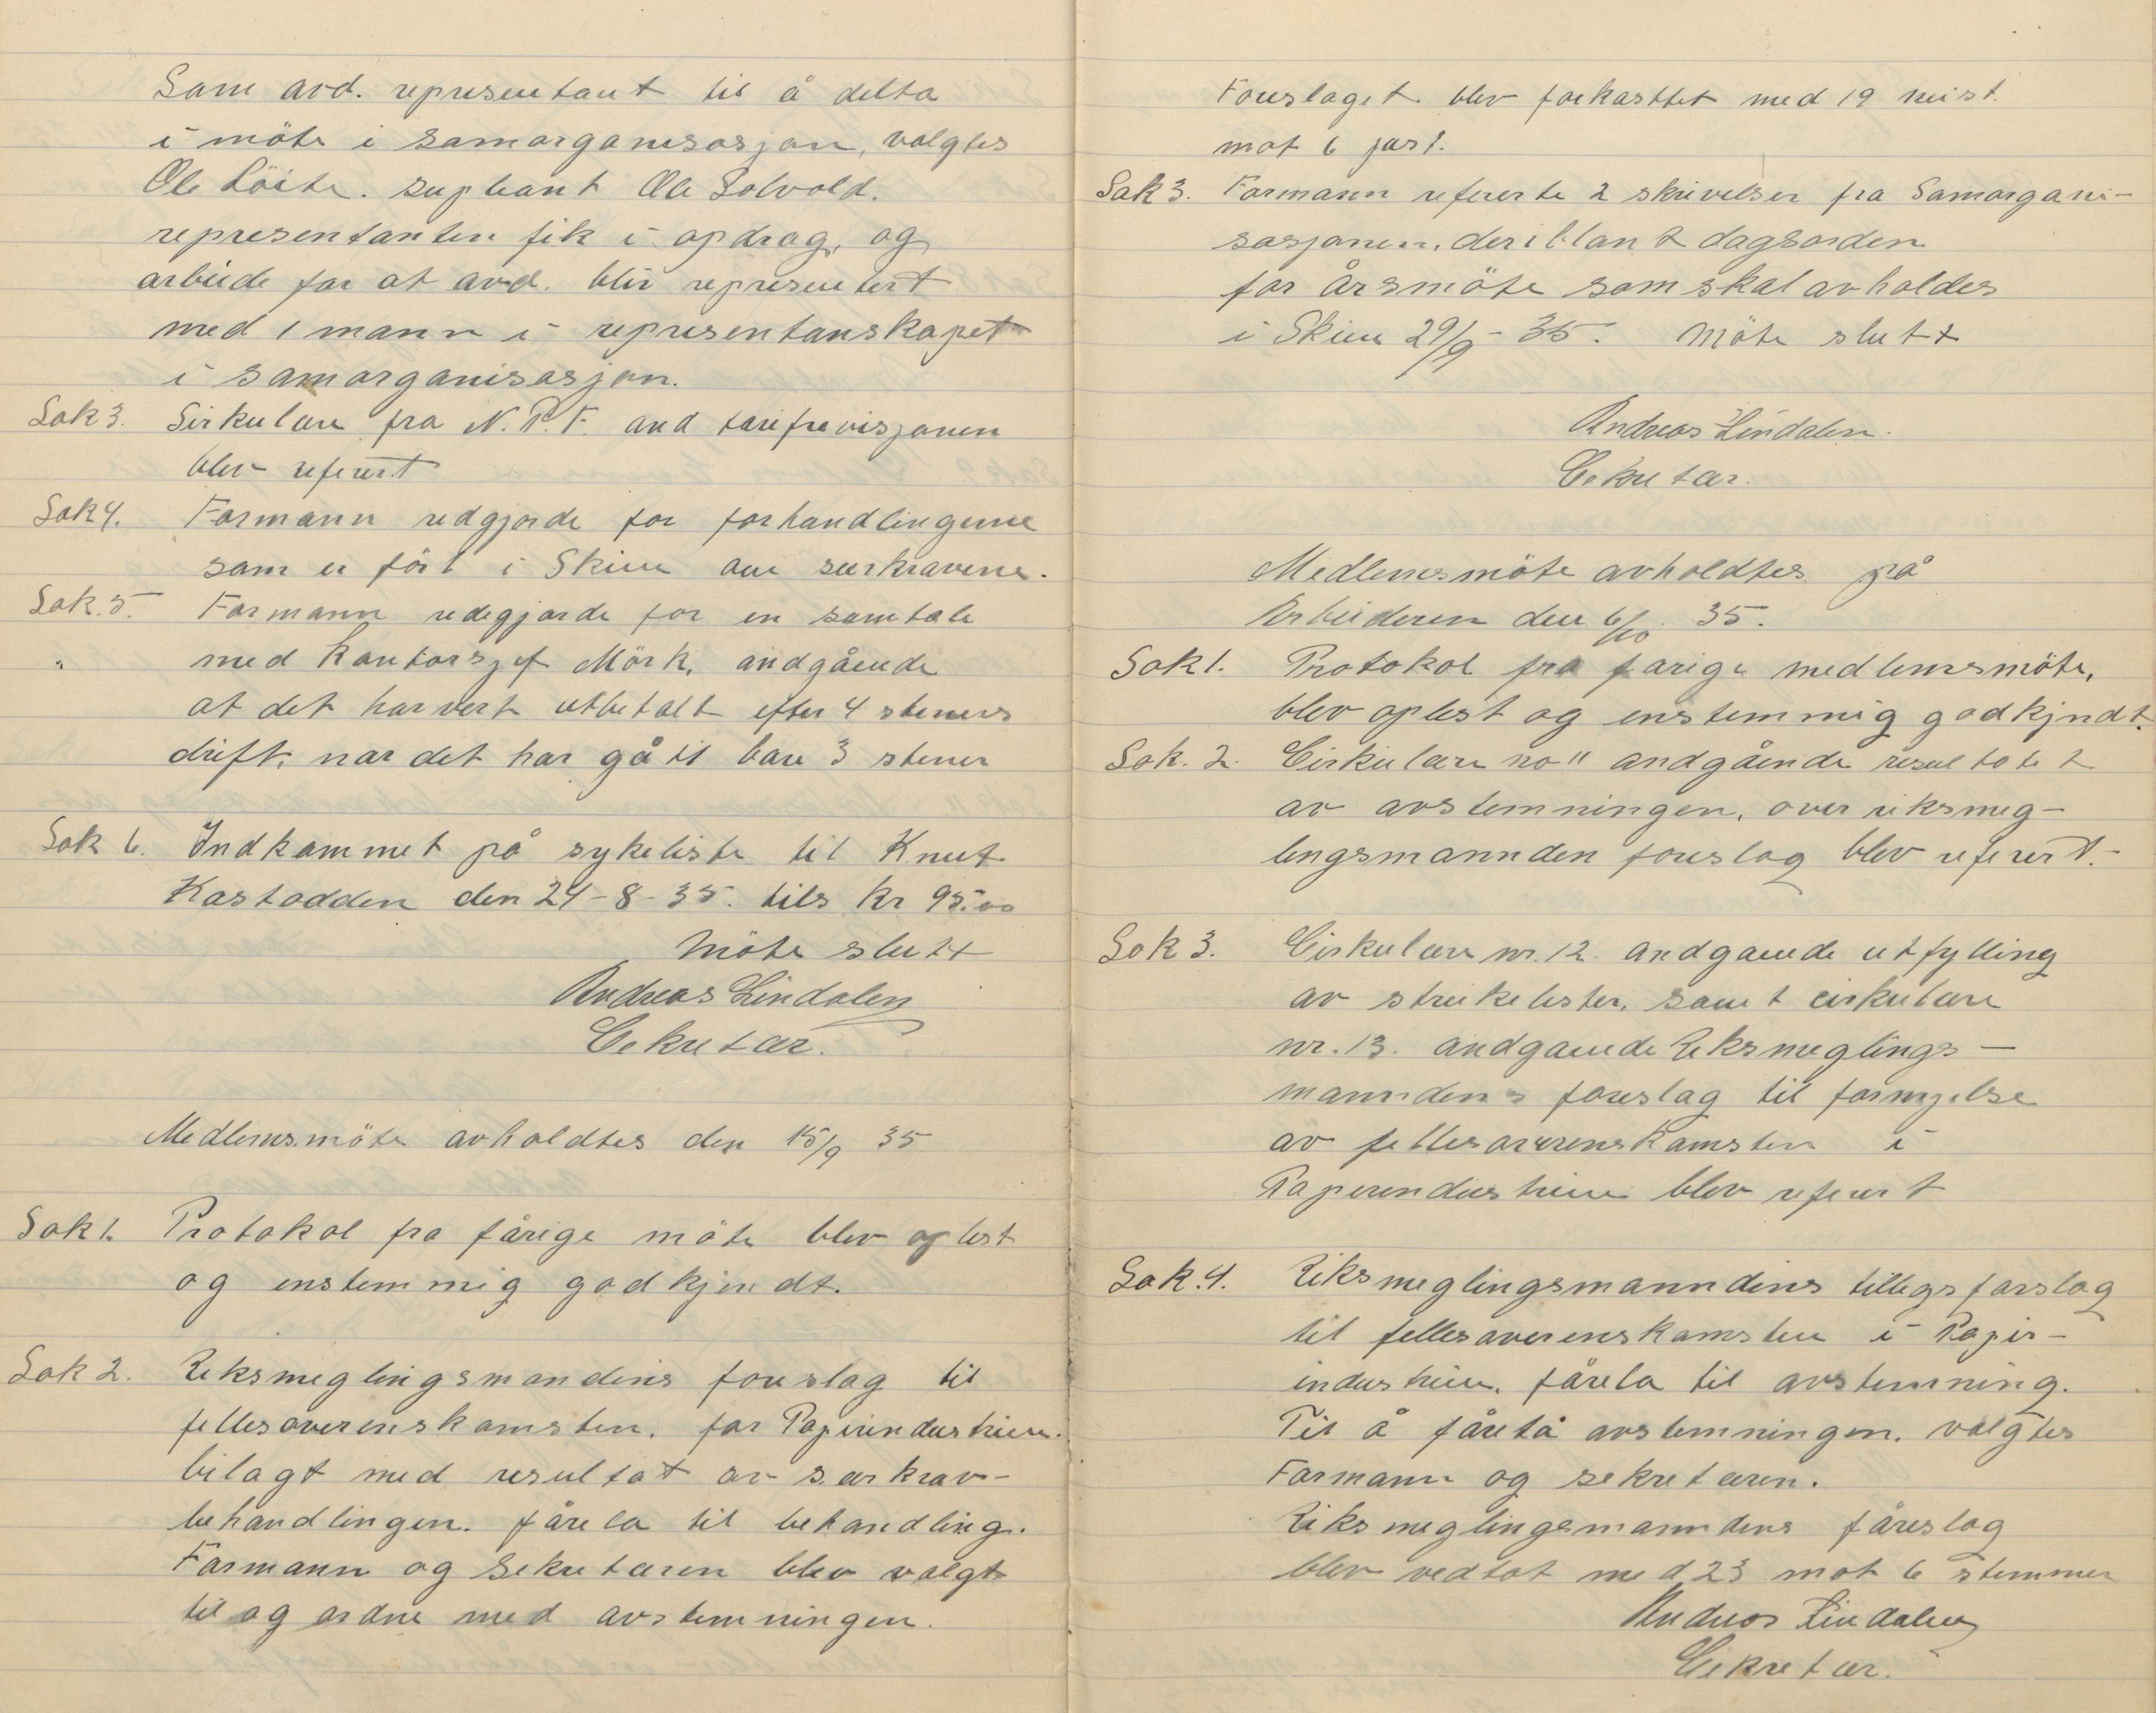 Som avd. representant til å delta
i möte i samorganisasjon, valgtes
Ole Löite. supleant Ole Solvold.
representanten fik i opdrag, og
arbeide for at avd. blir representert
med 1 mann i representanskapet
i samorganisasjon.
Sak 3. Sirkulære fra N. P. F. and tarifrevisjonen
blev referert
Sak 4. Formann redgjorde for forhandlingene
som er fört i Skien om særkravene.
Sak. 5. Formann redegjorde for en samtale
med Kontorsjef Mörk, andgående
at det har vert utbetalt efter 4 steners
drift, nar det har gått bare 3 stener
Sak 6. Indkommet på sykeliste til Knut
Kastodden den 24-8-35. tils kr 95.00
Möte slutt
Andreas Lindalen
Cekretær.
Medlemsmöte avholdtes den 15/9 35
Sak 1. Protokol fra fårige möte blev oplest
og enstemmig godkjendt.
Sak 2. Riksmeglingsmandens foreslag til
fellesoverenskomsten, for Papirindustrien.
bilagt med resultat av særkrav-
behandlingen. fårela til behandling.
Formann og Sekretæren blev valgt
til og ordne med avstemningen.
Foreslaget blev forkasttet med 19 neist.
mot 6 jast.
Sak 3. Formann refererte 2 skrivelser fra Samorgani-
sasjonen, deriblant dagsorden
for Årsmöte som skal avholdes
i Skien 29/9-35. Möte slutt
Andreas Lindalen.
Cekretær.
Medlemsmöte avholdtes på
Arbeideren den 6/10. 35.
Sak 1. Protokol fra farige medlemsmöte,
blev oplest og enstemmig godkjndt.
Sak. 2. Cirkulære no 11 andgående resultatet
av avstemningen, over riksmeg-
lingsmannden foreslag blev referert.
Sak 3. Cirkulære nr. 12. andgaende utfylling
av streikelister, samt cirkulære
nr. 13. andgaende Riksmeglings-
manndens foreslag til fornyelse
av fellesoverenskomsten i
Paperendustrien blev referert
Sak. 4. Riksmeglingsmanndens tillegsforslag
til fellesoverenskomsten i Papir-
industrien, fårela til avstemning.
Til å fåretå avstemningen, valgtes
Formann og sekretæren.
Riksmeglingsmanndens fåreslag
blev vedtat med 23 mot 6 stemmer
Andreas Lindalen
Cekretær.